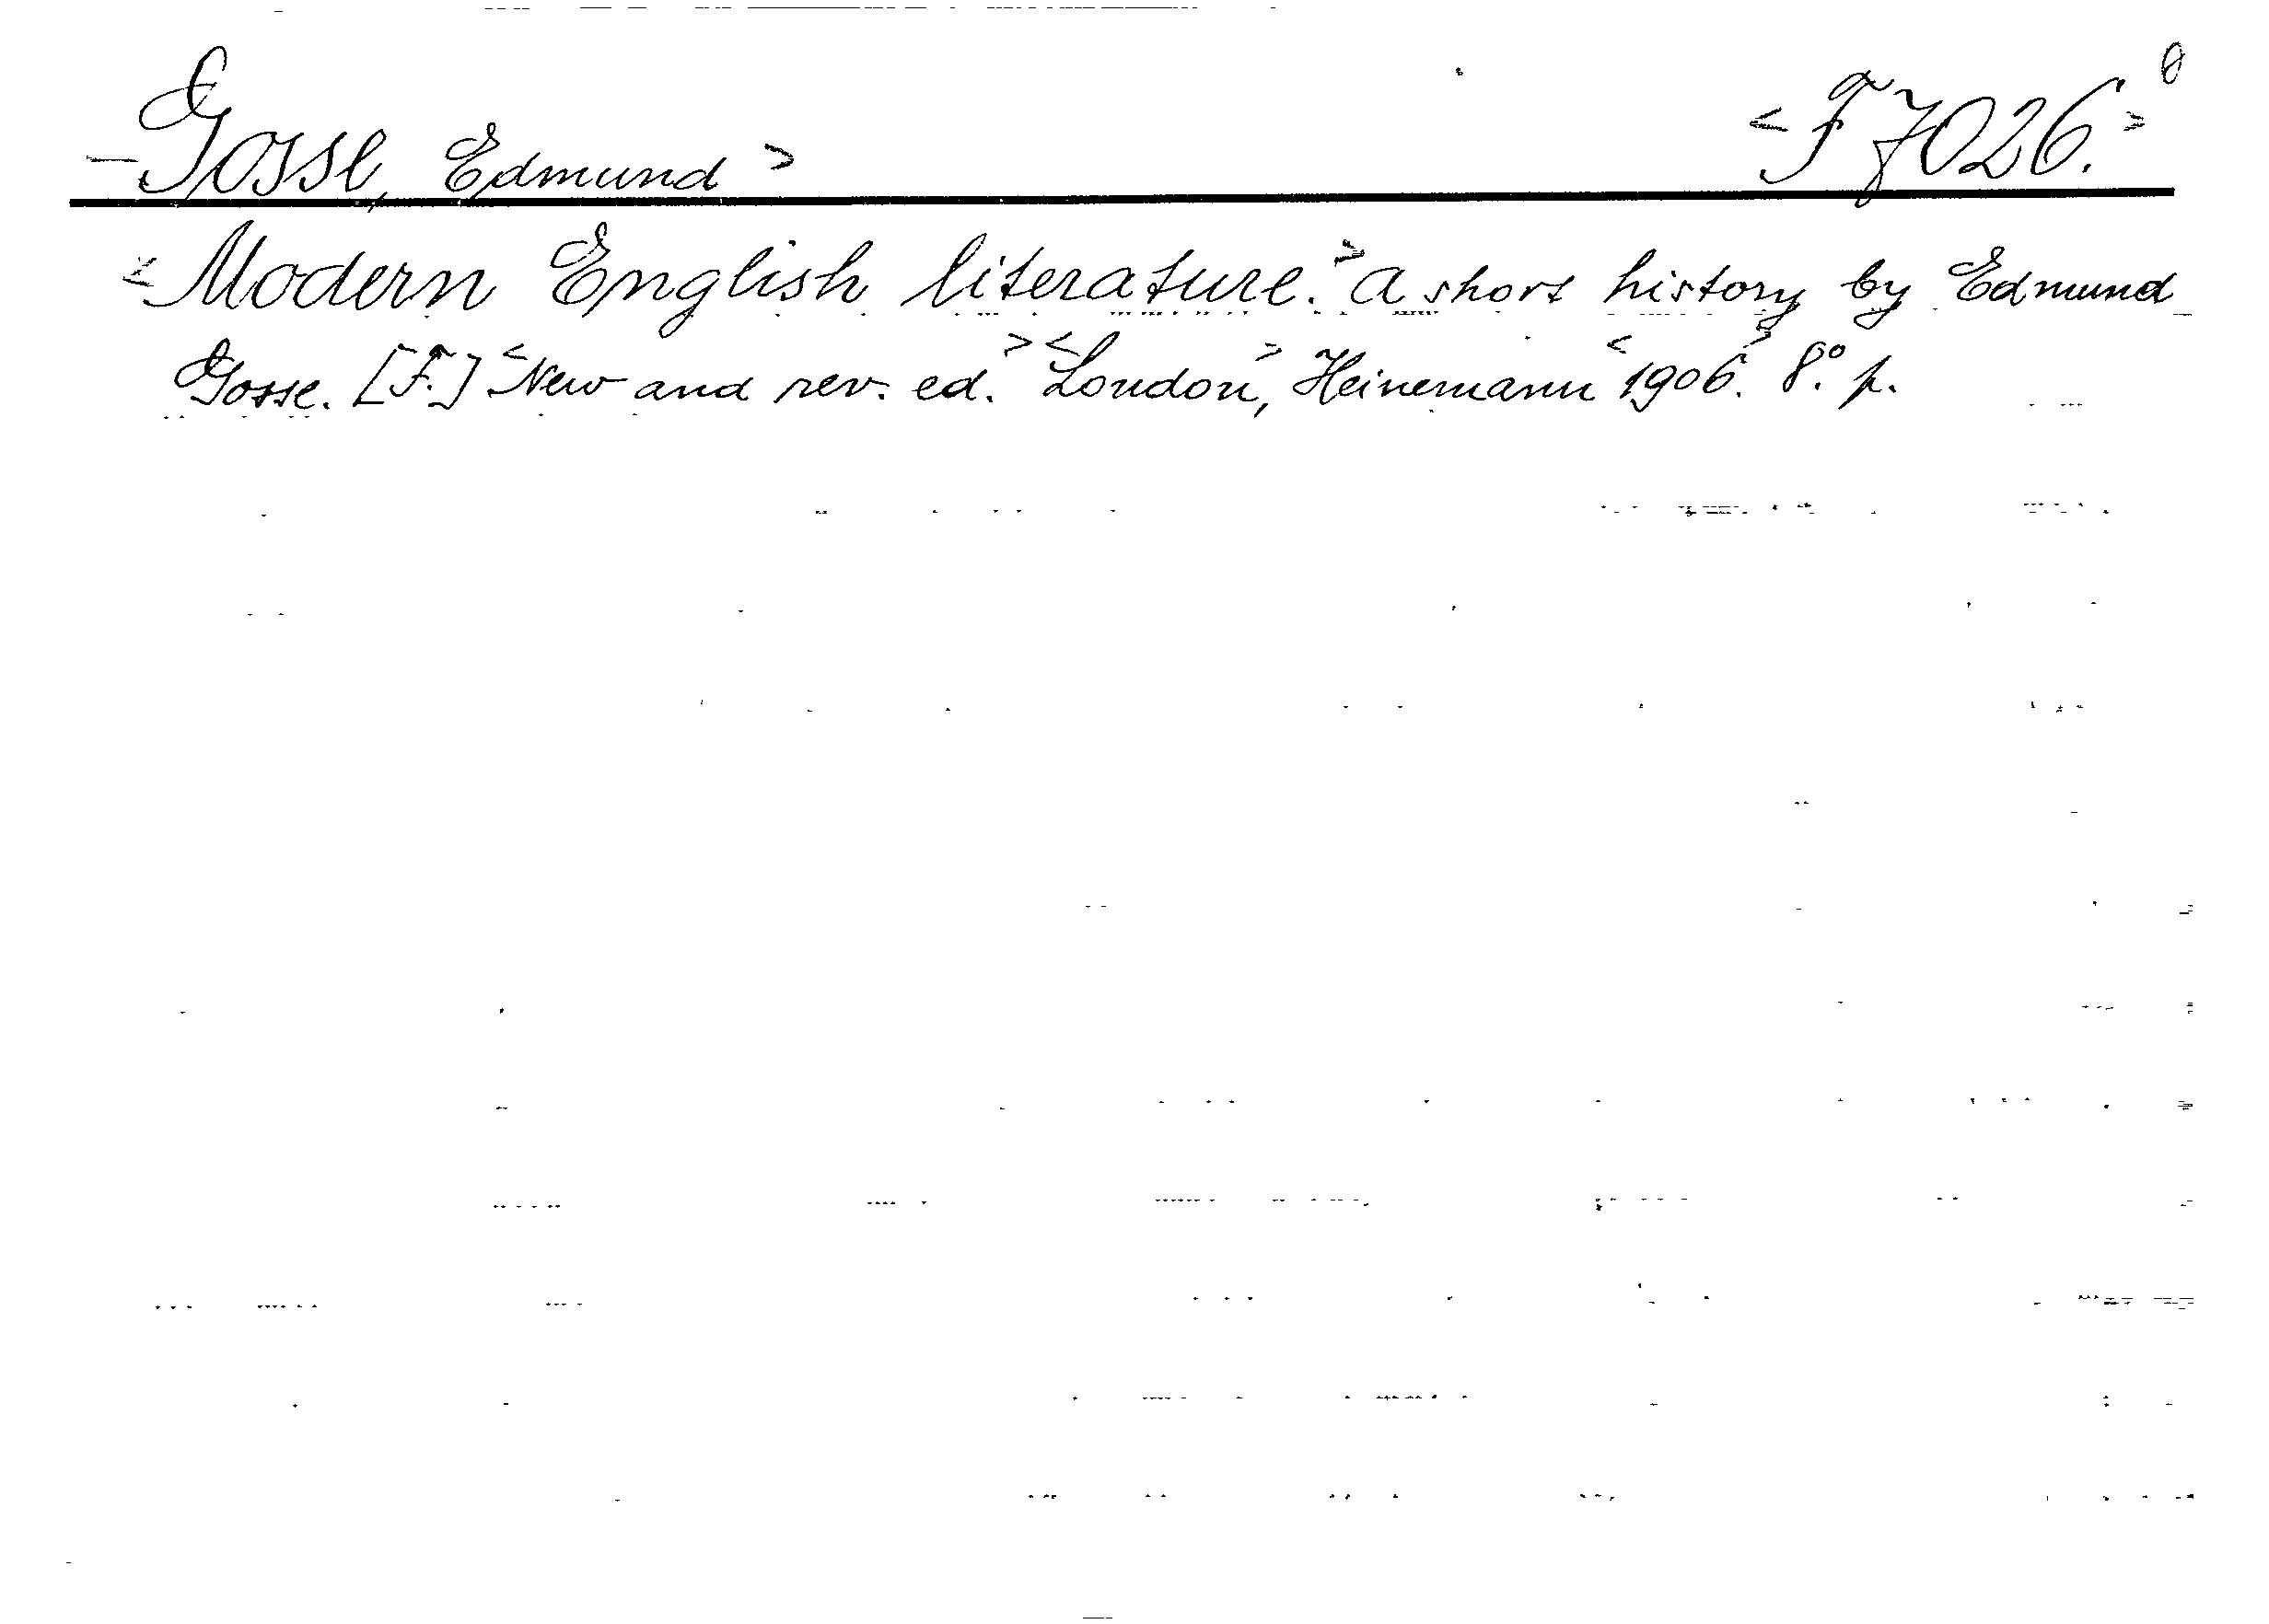 Gosse, Edmund > < F 7026. > 0
< Modern English literature. > A short history by Edmund
Gosse. [F.] < New and rev. ed. > < London >, Heinemann < 1906. > 8.° p.